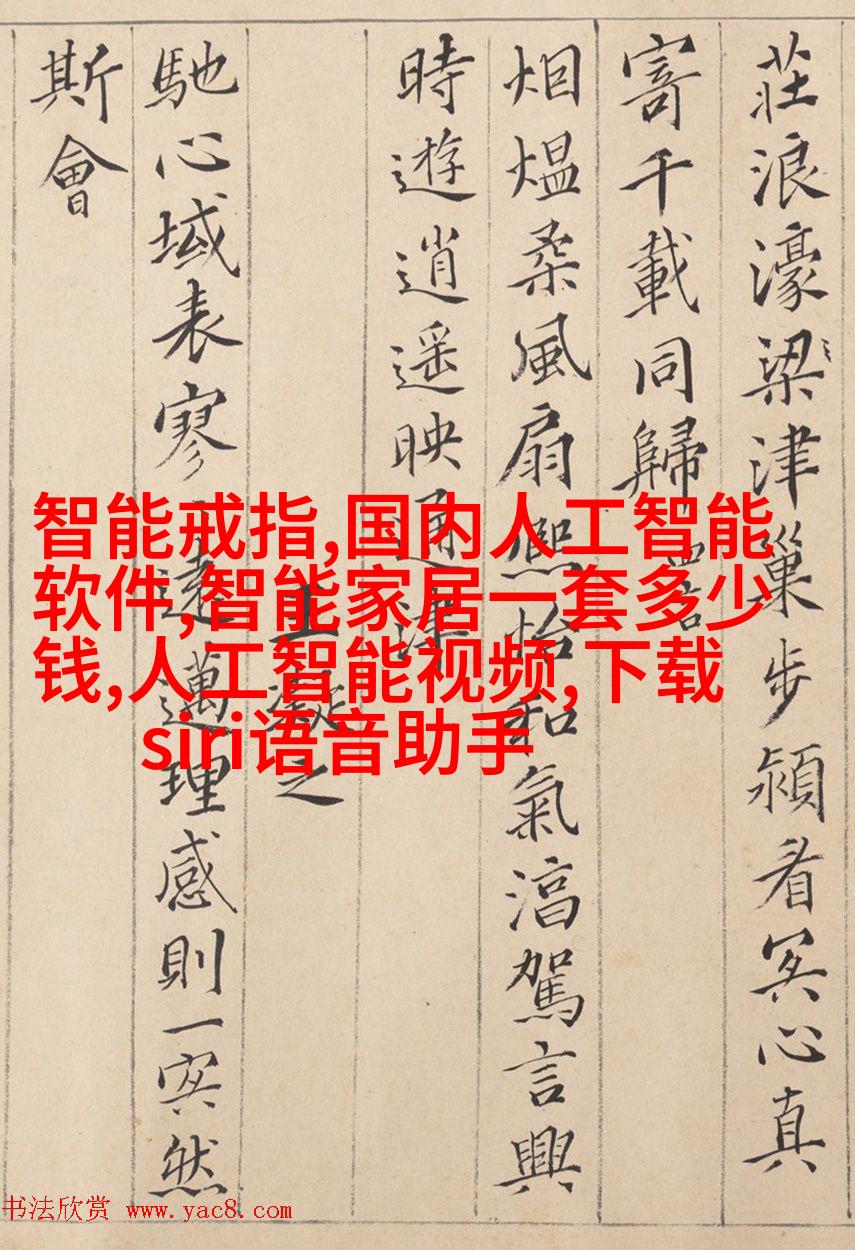 莊浪濠梁津巢步潁看冥心真
寄千載同歸 四言
烟熅柔風扇熙怡和氣湻駕言興
時遊逍遥映通津
王凝之
馳心域表寥遠邁理感則一冥然
斯會
智能戒指,国内人工智能
软件,智能家居一套多少
钱,人工智能视频,下载
siri语音助手
书法欣赏 www.yac8.com